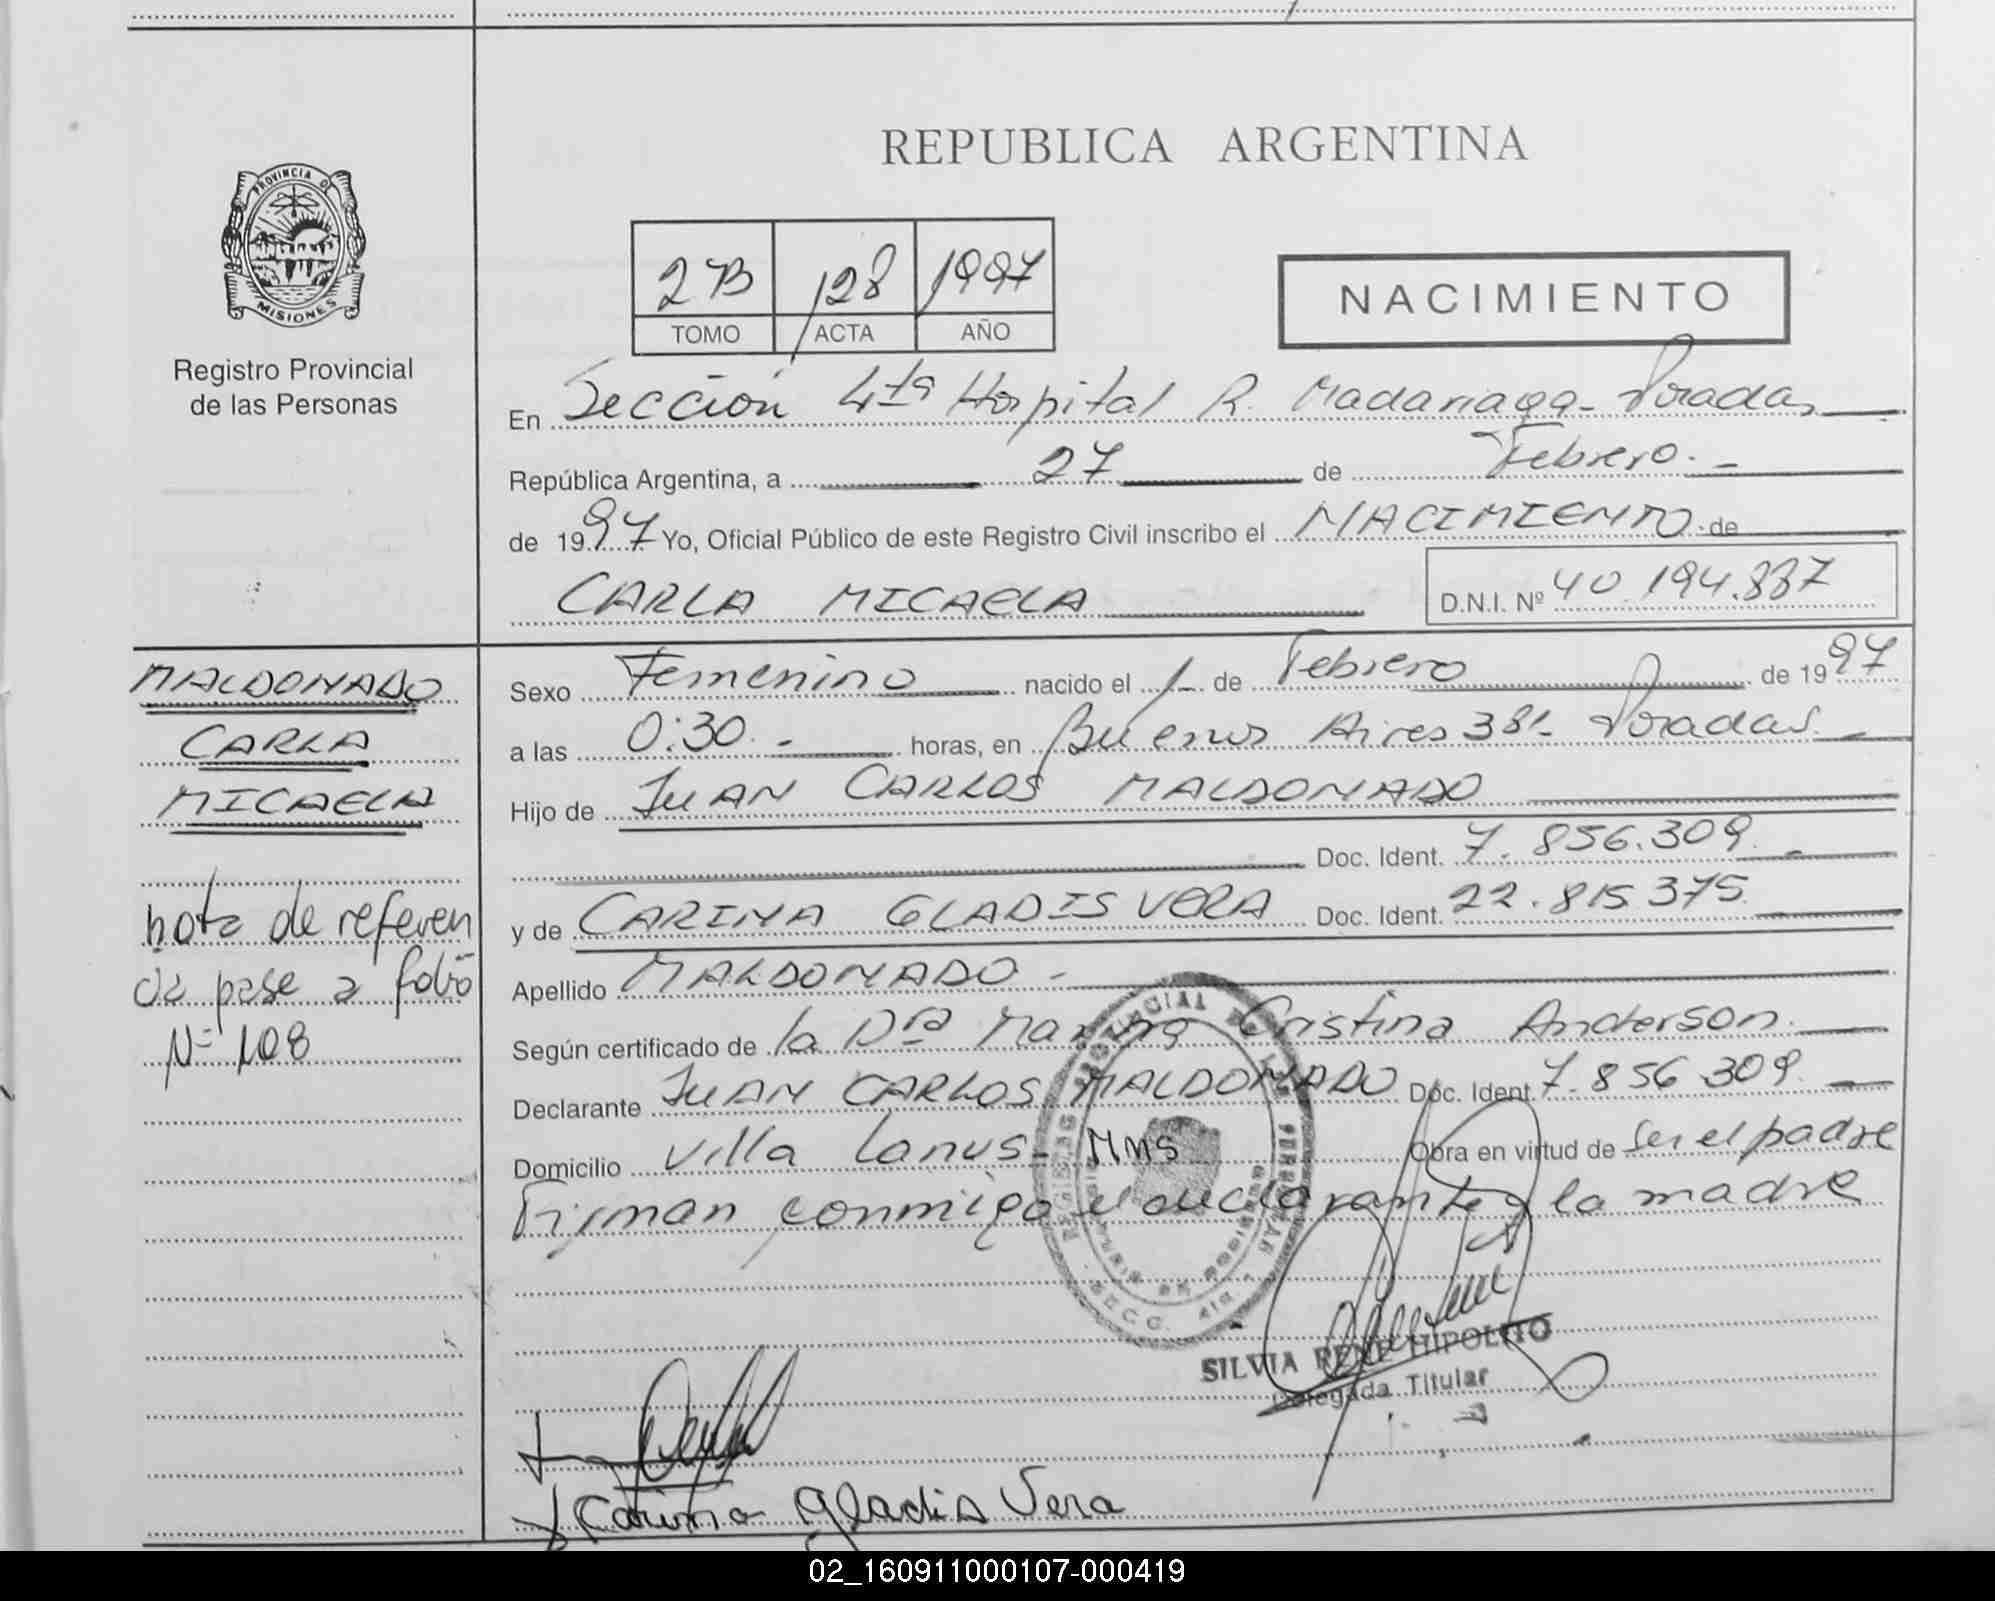 REPUBLICA ARGENTINA
PROVINCIA DE
MISIONES
Registro Provincial
de las Personas
2B 128 1997
TOMO ACTA AÑO
NACIMIENTO
En Sección 4ta Hospital R. Madariaga - Posadas
República Argentina, a 27 de Febrero. -
de 1997 Yo, Oficial Público de este Registro Civil inscribo el NACIMIENTO de
CARLA MICAELA D.N.I. Nº 40.194.887
MALDONADO
CARLA
MICAELA
nota de referen
cia pase a folio
Nº 108
Sexo Femenino nacido el 1 de Febrero de 1997
a las 0:30. - horas, en Buenos Aires 381 - Posadas. -
Hijo de JUAN CARLOS MALDONADO
Doc. Ident. 7.856.309. -
y de CARINA GLADIS VERA Doc. Ident. 22.815.375.
Apellido MALDONADO -
Según certificado de la Dra Marina Cristina Anderson.
Declarante JUAN CARLOS MALDONADO Doc. Ident. 7.856.309. -
Domicilio Villa Lanus - Mnes Obra en virtud de ser el padre
Firman conmigo el declarante y la madre
SILVIA RENE HIPOLITO
Delegada Titular
Carina Gladis Vera
02_160911000107-000419